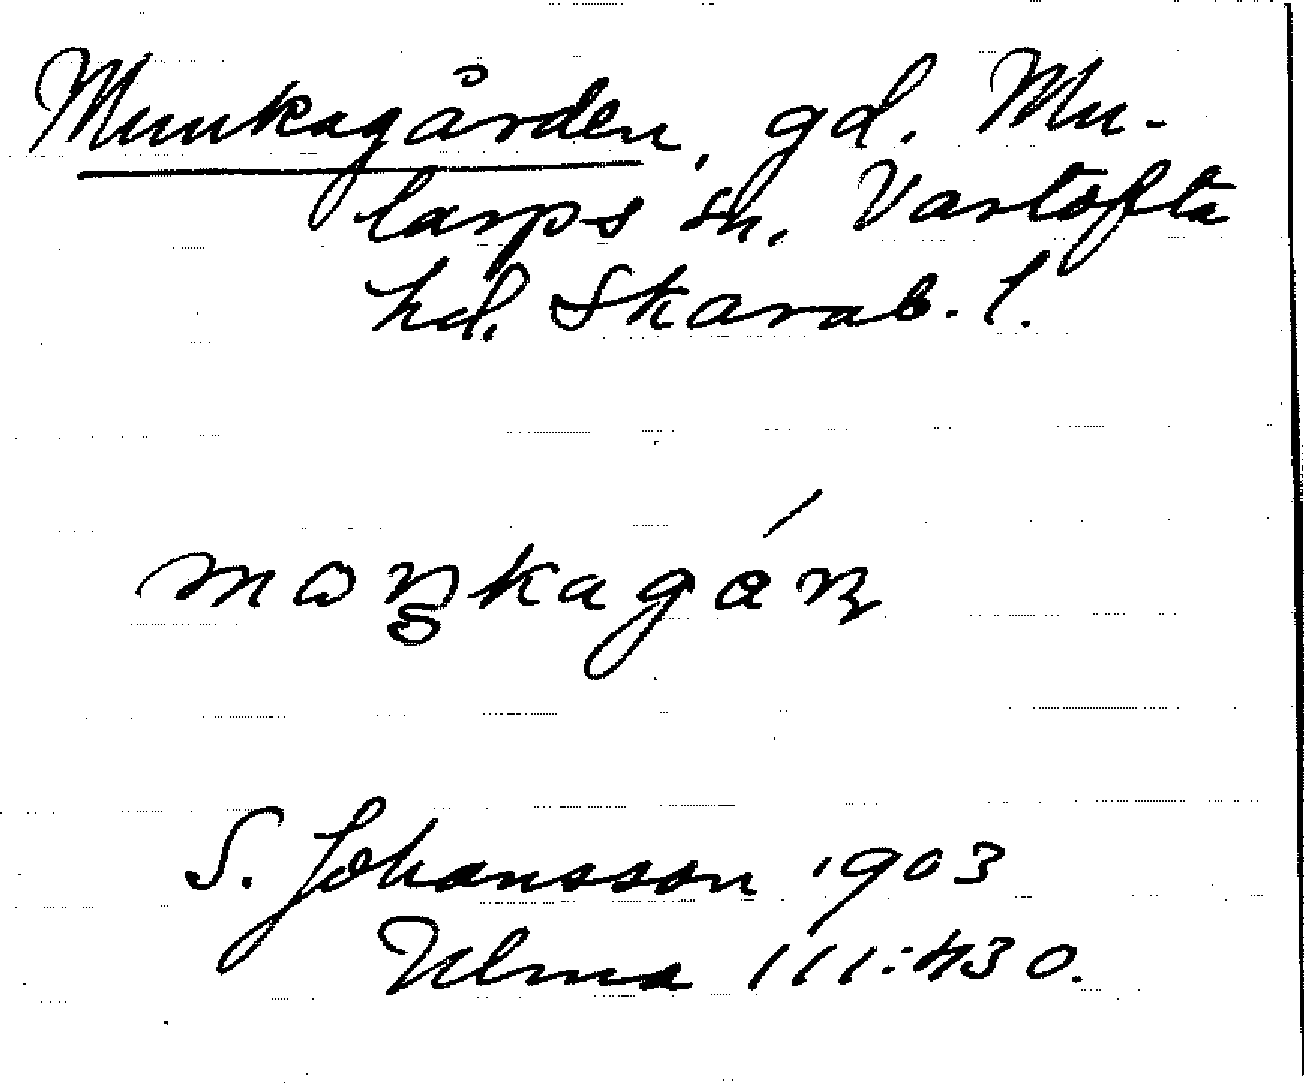 Munkagården, gd. Mu-
larps sn. Vartofta
hd. Skarab. l.
S. Johansson 1903
Ulma 111:430.